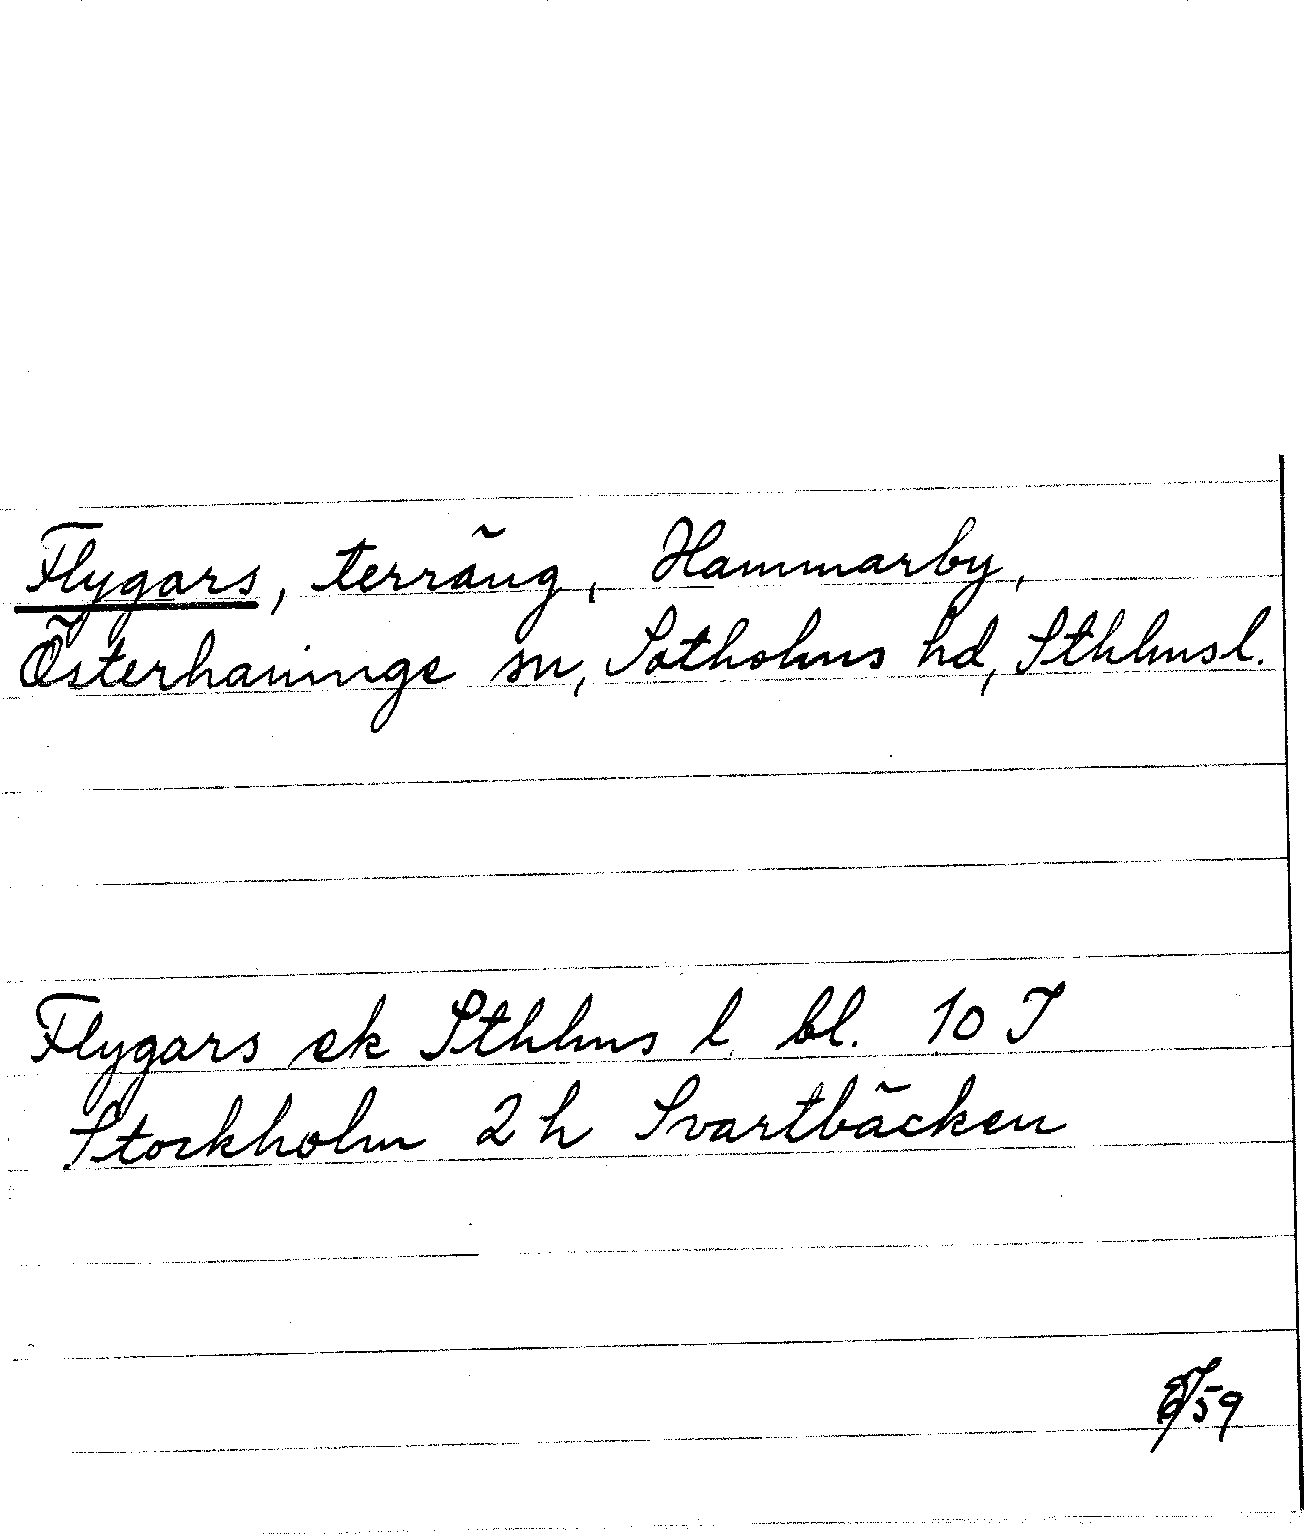 Flygars, terräng, Hammarby,
Österhaninge sn, Sotholms hd, Sthlmsl.
Flygars ek Sthlms l. bl. 10 I
Stockholm 2 h Svartbäcken
59